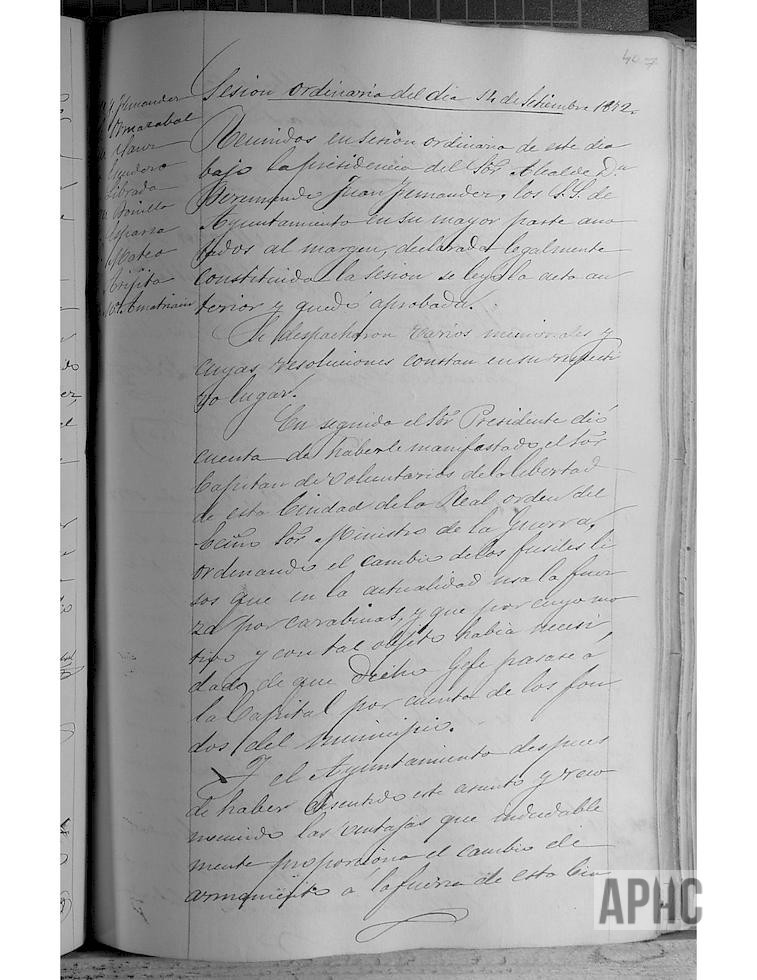 407
Sesion ordinaria del dia 14 de Setiembre 1872.
Fernandez
Ormazabal
Librada
Bonilla
Esparza
Mateo
Amatriain
Reunidos en sesion ordinaria de este dia
bajo la presidencia del Sor. Alcalde D.n
Juan Fernandez, los S.S. de
Ayuntamiento en su mayor parte ano
tados al margen, declarada legalmente
constituida la sesion se leyó la acta an
terior y quedó aprobada.
Se despacharon varios memoriales y
cuyas resoluciones constan en su respecti
vo lugar.
En seguida el Sor. Presidente dió
cuenta de haberle manifestado el Sor.
Capitan de Voluntarios de la libertad
de esta Ciudad de la Real orden del
Ecmo Sor. Ministro de la Guerra,
ordenando el cambio de los fusiles li
sos que en la actualidad usa la fuer
za por carabinas, y que por cuyo mo
tivo y con tal objeto habia necesi
dad de que dicho Gefe pasase á
la Capital por cuenta de los fon
dos del Municipio.
Y el Ayuntamiento despues
de haber discutido este asunto y reco
nociendo las ventajas que indudable
mente proporciona el cambio de
armamento a la fuerza de esta Ciu
APHC